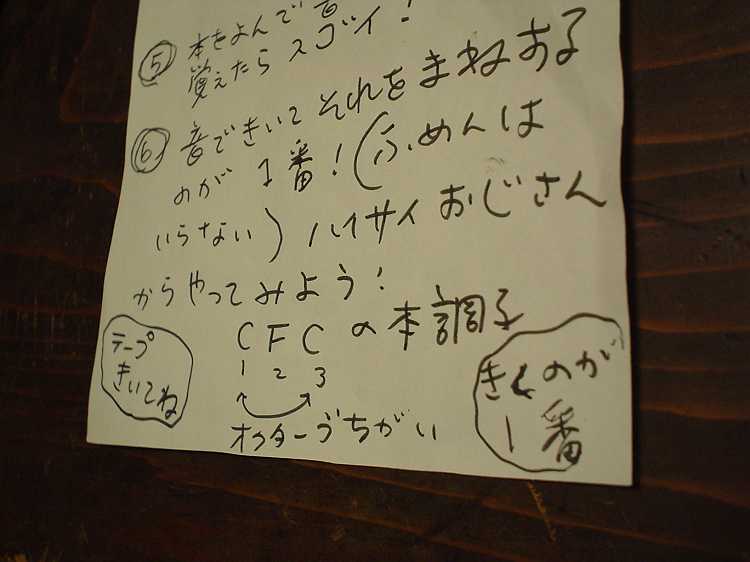 ⑤ 本をよんで音
覚えたらスゴイ!
⑥ 音できいてそれをまねする
のが1番!(ふめんは
いらない)ハイサイおじさん
からやってみよう!
CFCの本調子
1 2 3
オクターヴちがい
テープ
きいてね
きくのが
1番